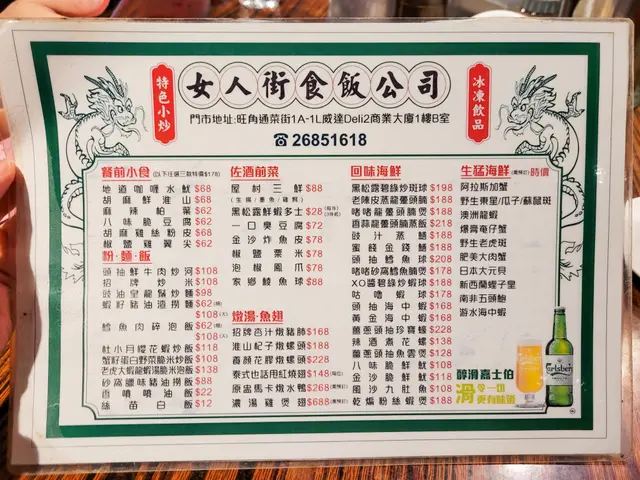 特色小炒
女人街食飯公司
冰凍飲品
門市地址:旺角通菜街1A-1L威達Deli2商業大廈1樓B室
☎26851618
餐前小食(以下任選三款特價$178)
地道咖喱水魷$68
胡麻鮮淮山$68
麻辣柏葉$62
八味脆豆腐$62
胡麻雞絲粉皮$68
椒鹽雞翼尖$62
粉·麵·飯
頭抽鮮牛肉炒河$108
招牌炒米$108
豉油皇龍鬚炒麵$98
蝦籽豬油渣撈麵$62(細)
$108(大)
鱈魚肉碎泡飯$62(細)
$108(大)
杜小月櫻花蝦炒飯$118
蟹籽蛋白野菜脆米炒飯$108
老虎大蝦龍蝦湯脆米泡飯$138
砂窩臘味豬油撈飯$88
香噴噴油飯$22
絲苗白飯$12
佐酒前菜
屋村三鮮$88
(生腸/墨魚/雞腎)
黑松露鮮蝦多士$28(每件)
(3件起)
一口臭豆腐$72
金沙炸魚皮$78
椒鹽粟米$78
泡椒鳳爪$78
家鄉鯪魚球$88
燉湯·魚翅
招牌杏汁燉豬肺$168
淮山杞子燉螺頭$188
養顏花膠燉螺頭$228
泰式也話甩紅燒翅$148(每位)
原盅馬卡燉水鴨$268(需預訂)
濃湯雞煲翅$688(需預訂)
回味海鮮
黑松露碧綠炒斑球$198
老陳皮蒸龍躉頭腩$188
啫啫龍躉頭腩煲$188
香蒜龍躉頭腩蒸飯$218
豉汁蒸鱔$188
蜜餞金錢鱔$188
頭抽鱈魚球$208
啫啫砂窩鱈魚腩煲$178
XO醬碧綠炒蝦球$188
咕嚕蝦球$178
頭抽海中蝦$168
黃金海中蝦$168
薑蔥頭抽珍寶蠔$228
辣酒煮花螺$138
薑蔥頭抽魚雲煲$128
八味脆鮮魷$108
金沙脆鮮魷$118
風沙九肚魚$108
乾煸粉絲蝦煲$188
生猛海鮮(需預訂)時價
阿拉斯加蟹
野生東星/瓜子/蘇鼠斑
澳洲龍蝦
爆膏奄仔蟹
野生老虎斑
肥美大肉蟹
日本大元貝
新西蘭蟶子皇
南非五頭鮑
游水海中蝦
醇滑嘉士伯
滑令一切
更有味道
Carlsberg